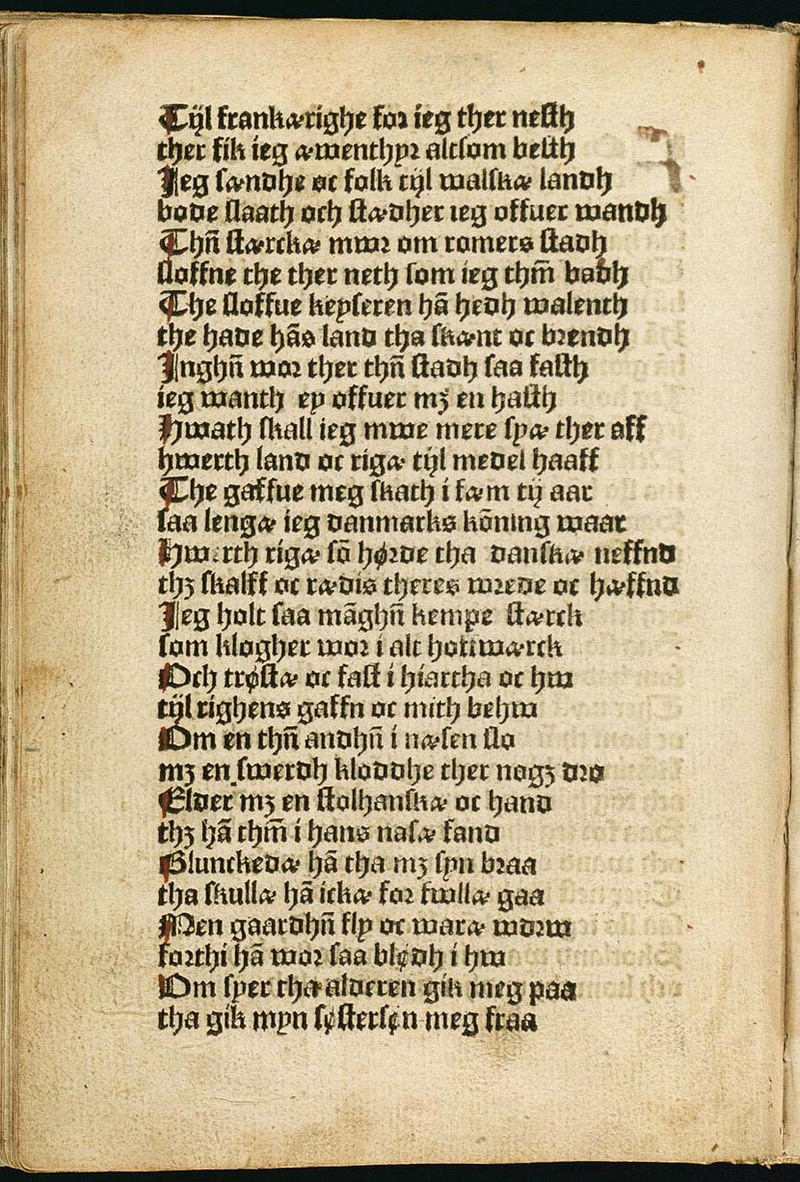 Tijl frankærighe for ieg ther nesth
ther fik ieg æwenthyr altsom besth
Jeg sændhe oc folk tijl walskæ landh
bode slaath och stædher ieg offuer wandh
Thn̄ stærckæ mwr om romers stadh
sloffne the ther neth som ieg thm̄ badh
The sloffue keyseren hā hedh walenth
the hade hās land tha skænt oc brendh
Jnghn̄ wor ther thn̄ stadh saa fasth
ieg wanth ey offuer mꝫ en hasth
Hwath skall ieg mwe mere syæ ther aff
hwerth land oc rigæ tijl medel haaff
The gaffue meg skath i fæm tij aar
saa lengæ ieg danmarks kōning waar
Hwerth rigæ sō hørde tha danskæ neffnd
thꝫ skalff oc rædis theres wrede oc hæffnd
Jeg holt saa māghn̄ kempe stærck
som klogher wor i alt hoffwærck
Och trøstæ oc fast i hiartha oc hw
tijl righens gaffn oc mith behw
Om en thn̄ andhn̄ i næsen slo
mꝫ en swerdh kloddhe ther nogꝫ dro
Elder mꝫ en stolhanskæ oc hand
thꝫ hā thm̄ i hans nasæ fand
Glunckedæ hā tha mꝫ syn braa
tha skullæ hā ickæ for fwllæ gaa
Men gaardhn̄ fly oc waræ wdrw
forthi hā wor saa blødh i hw
Om syer tha alderen gik meg paa
tha gik myn søstersøn meg fraa